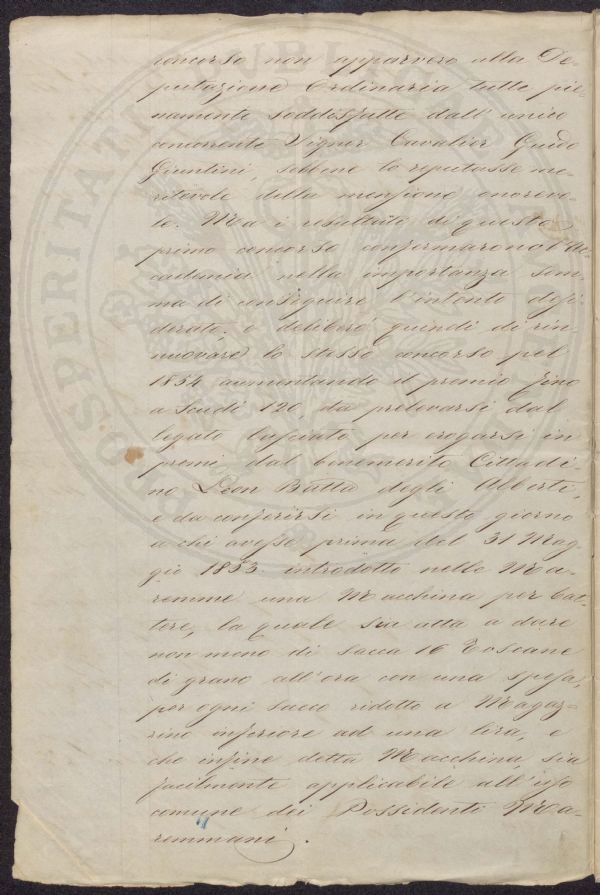 concorso non apparvero alla De-
putazione Ordinaria tutte pie-
namente soddisfatte dall'unico
concorrente Signor Cavalier Guido
Giuntini, sebbene lo reputasse me-
ritevole della menzione onorevo-
le. Ma i resultati di questo
primo concorso confermarono l'Ac-
cademia nella importanza som-
ma di conseguire l'intento desi-
derato: e deliberò quindi di rin-
nuovare lo stesso concorso pel
1854 aumentando il premio fino
a Scudi 120, da prelevarsi dal
legato lasciato per erogarsi in
premi dal benemerito Cittadi-
no Leon Batta degli Alberti,
e da conferirsi in questo giorno
a chi avesse prima del 31 Mag-
gio 1853 introdotto nelle Ma-
remme una Macchina per bat-
tere, la quale sia atta a dare
non meno di sacca 16 Toscane
di grano all'ora con una spesa,
per ogni sacco ridotto a Magaz-
zino inferiore ad una lira, e
che infine detta Macchina sia
facilmente applicabile all'uso
comune dei Possidenti Ma-
remmani.
PROSPERITATI PUBLICAE AUGENDAE